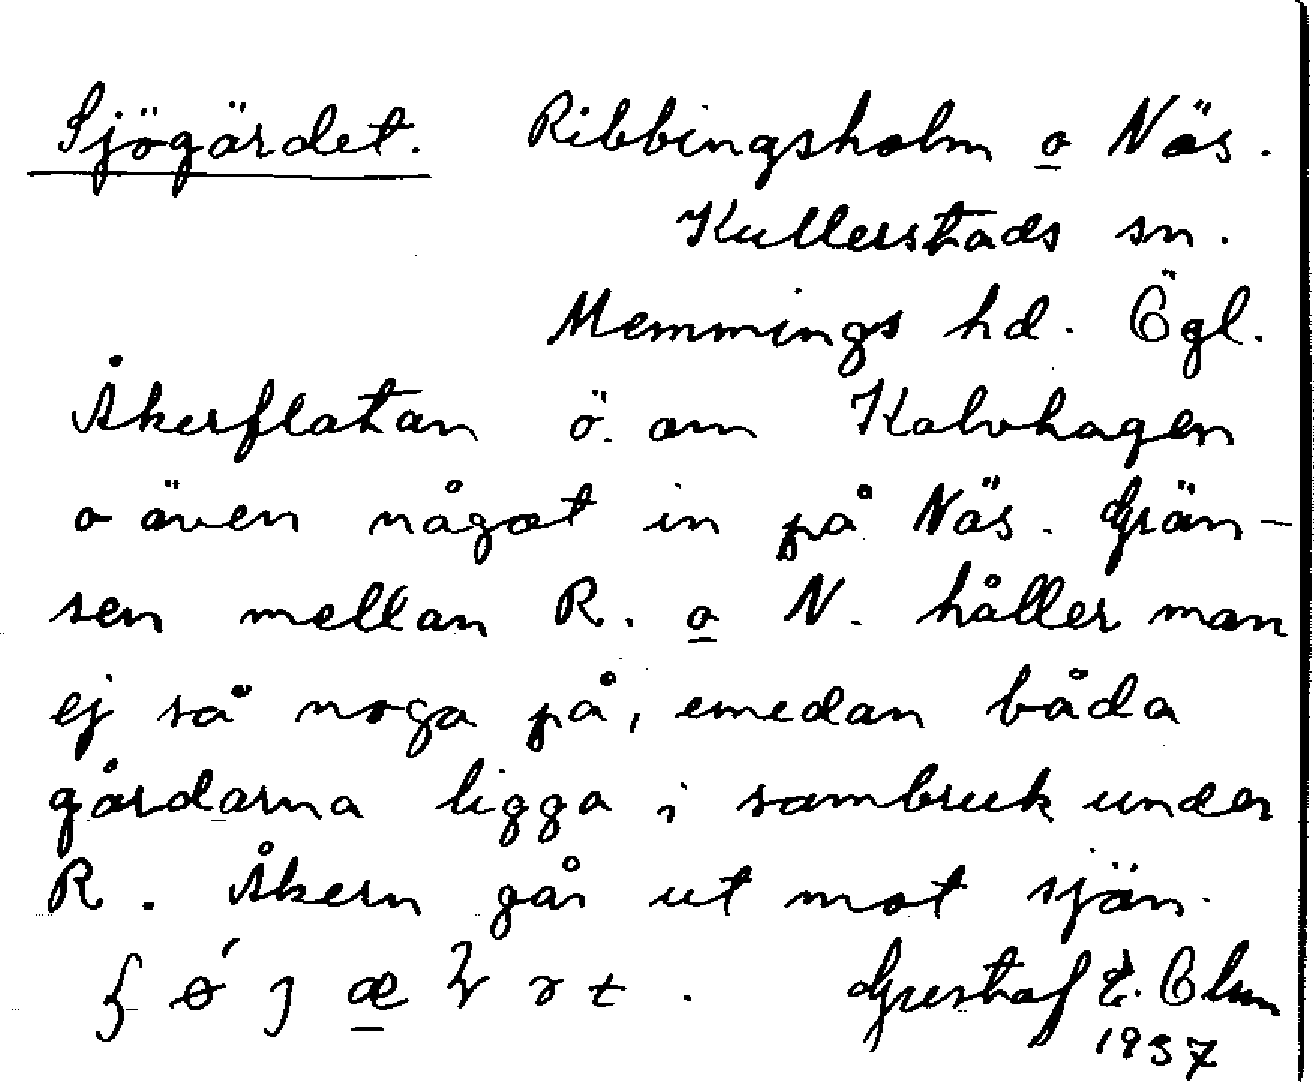 Sjögärdet. Ribbingsholm o Näs.
Kullerstads sn.
Memmings hd. Ögl.
Åkerflatan ö. om Kalvhagen
o även något in på Näs. Grän-
sen mellan R. o N. håller man
ej så noga på, emedan båda
gårdarna ligga i sambruk under
R. Åkern går ut mot sjön.
Gustaf E. Olson
1937